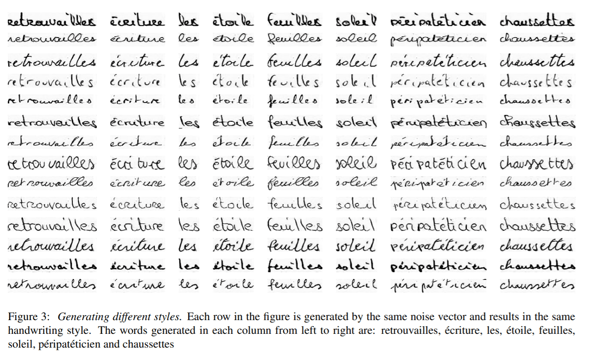 retrouvailles écriture les étoile feuilles soleil péripatéticien chaussettes
retrouvailles écriture les étoile feuilles soleil péripatéticien chaussettes
retrouvailles écriture les étoile feuilles soleil péripatéticien chaussettes
retrouvailles écriture les étoile feuilles soleil péripatéticien chaussettes
retrouvailles écriture les étoile feuilles soleil péripatéticien chaussettes
retrouvailles écriture les étoile feuilles soleil péripatéticien chaussettes
retrouvailles écriture les étoile feuilles soleil péripatéticien chaussettes
retrouvailles écriture les étoile feuilles soleil péripatéticien chaussettes
retrouvailles écriture les étoile feuilles soleil péripatéticien chaussettes
retrouvailles écriture les étoile feuilles soleil péripatéticien chaussettes
retrouvailles écriture les étoile feuilles soleil péripatéticien chaussettes
retrouvailles écriture les étoile feuilles soleil péripatéticien chaussettes
retrouvailles écriture les étoile feuilles soleil péripatéticien chaussettes
retrouvailles écriture les étoile feuilles soleil péripatéticien chaussettes
Figure 3: Generating different styles. Each row in the figure is generated by the same noise vector and results in the same
handwriting style. The words generated in each column from left to right are: retrouvailles, écriture, les, étoile, feuilles,
soleil, péripatéticien and chaussettes